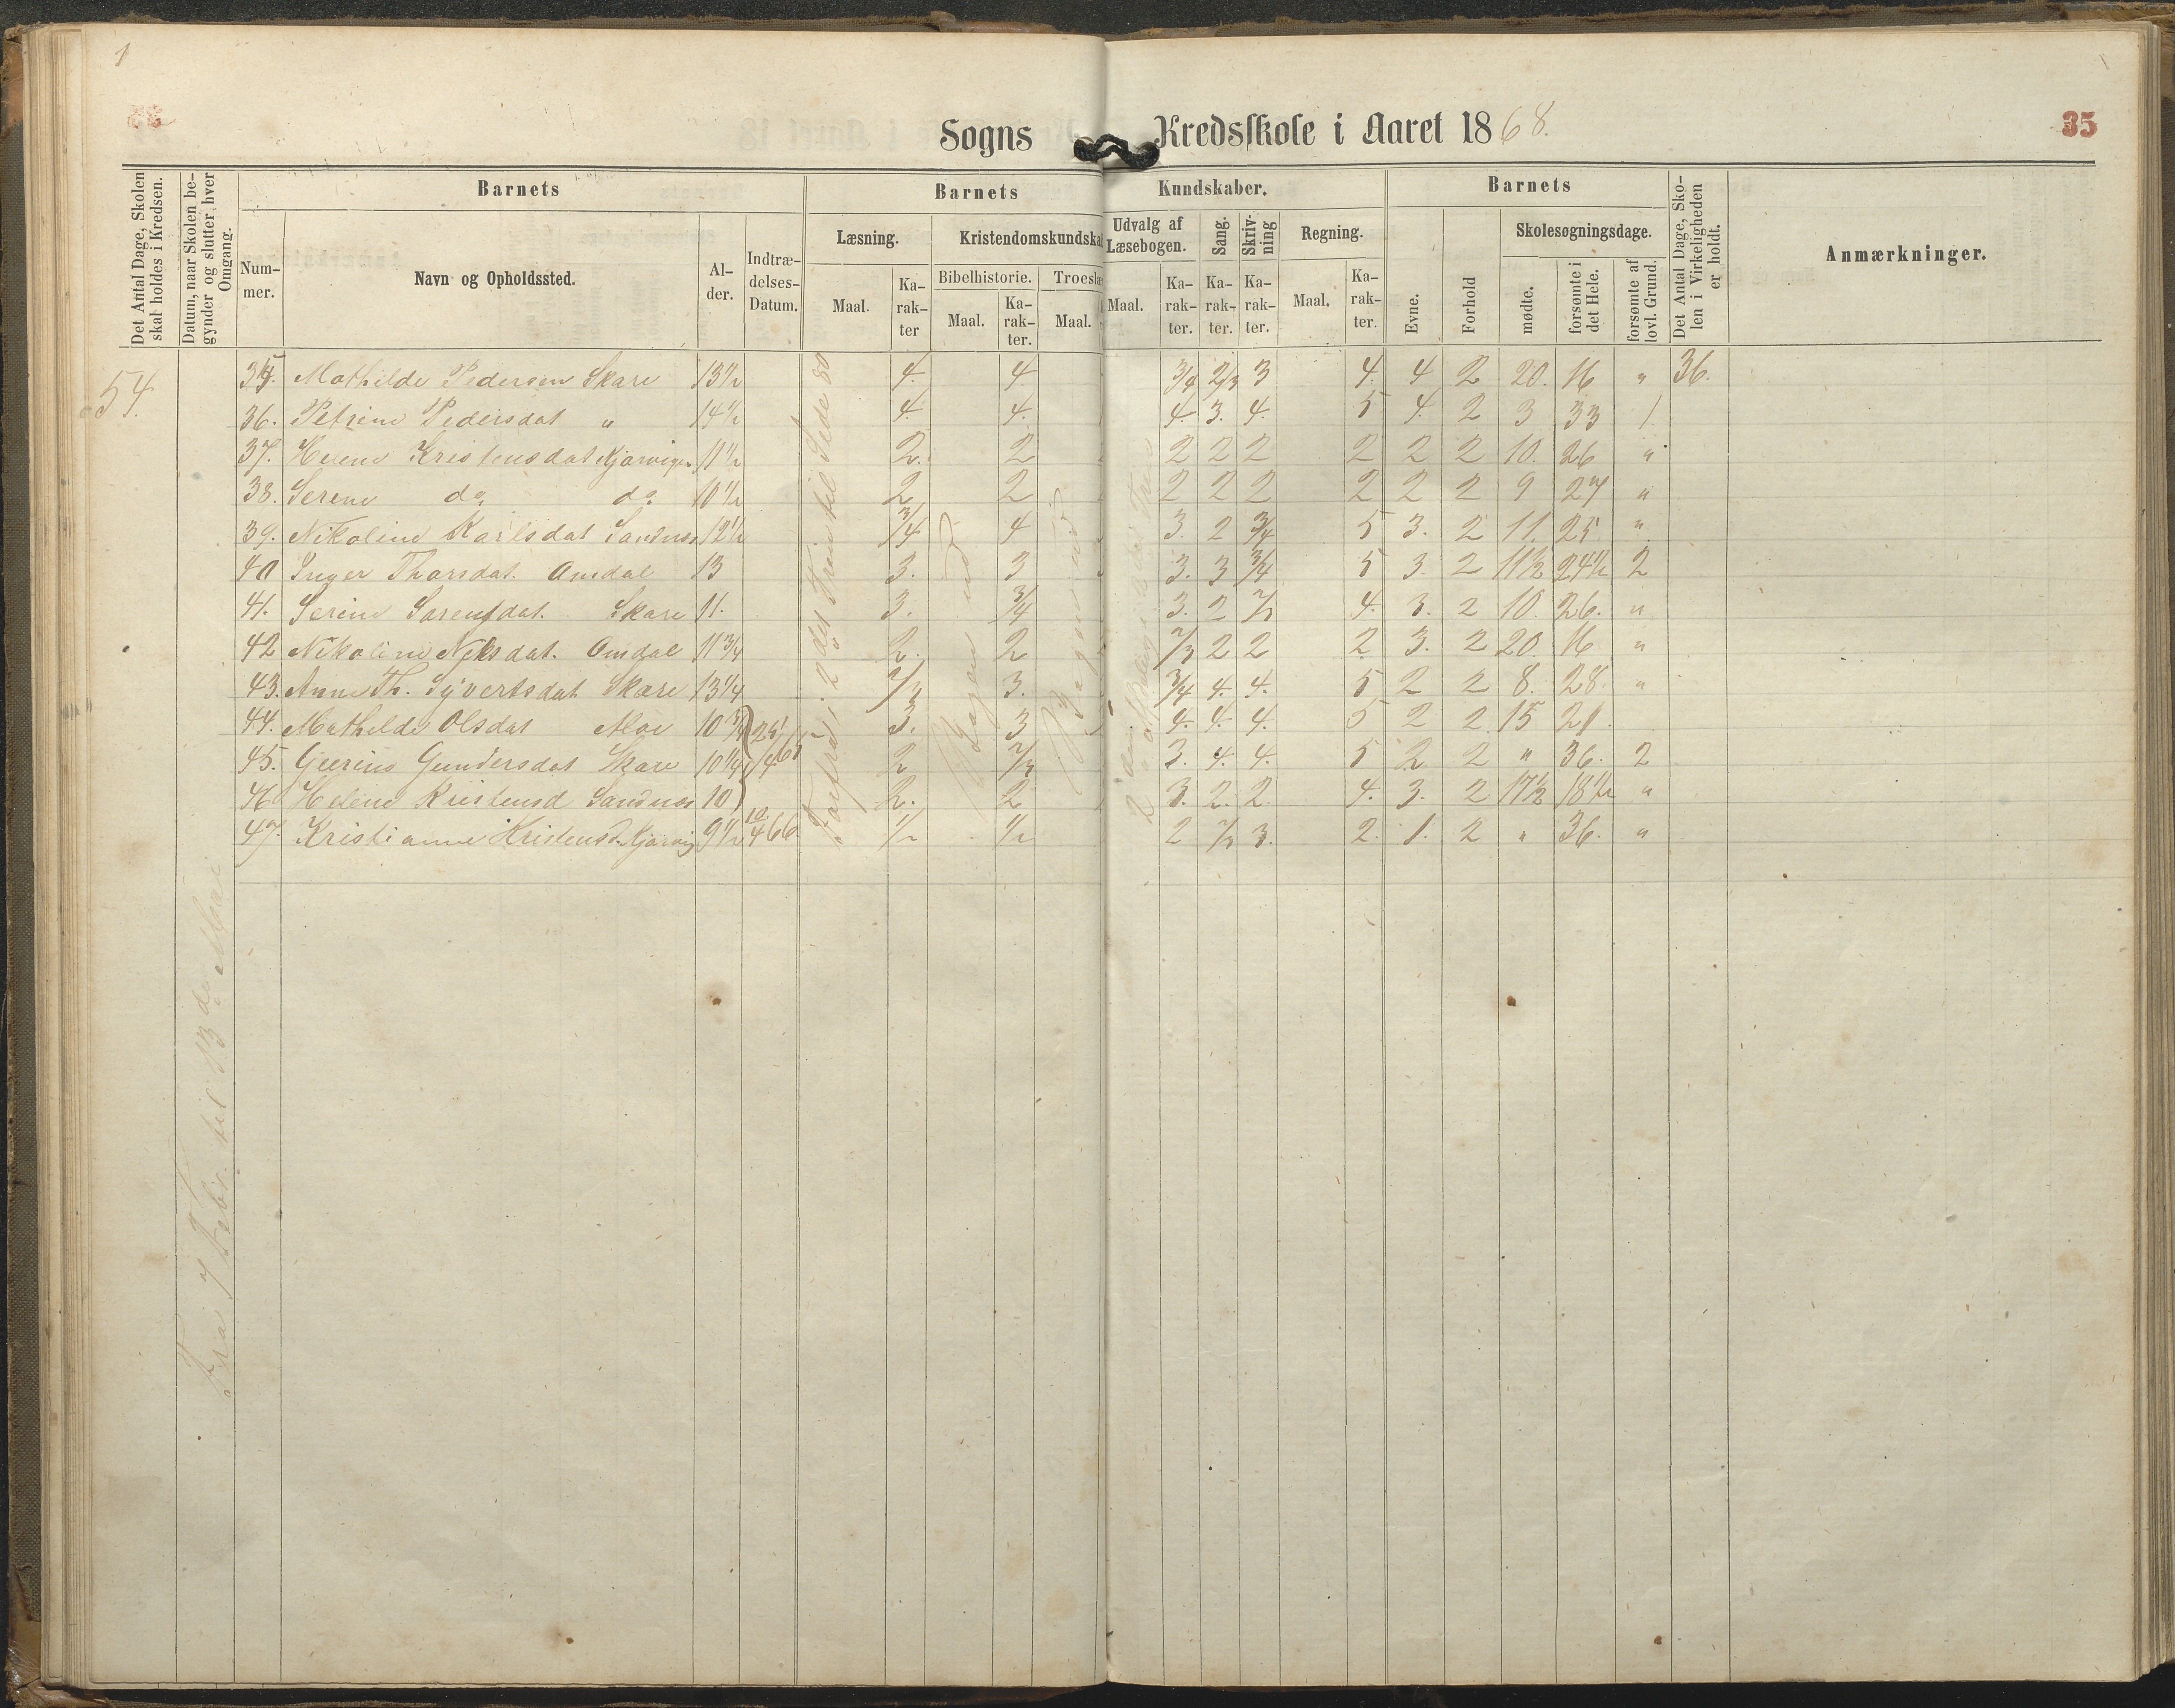 1
Sogns Kredsskole i Aaret 1868.
35
Det Antal Dage, Skolen skal holdes i Kredsen.
Datum, naar Skolen begynder og slutter hver Omgang.
Barnets
Barnets
Kundskaber.
Barnets
Det Antal Dage, Skolen i Virkeligheden er holdt.
Anmærkninger.
Nummer.
Navn og Opholdssted.
Alder.
Indtrædelses-Datum.
Læsning.
Kristendomskundska
Udvalg af Læsebogen.
Sang.
Skrivning
Regning.
Evne.
Forhold
Skolesøgningsdage.
Bibelhistorie.
Troeslæ
Maal.
Karakter
Maal.
Karakter.
Maal.
Maal.
Karakter.
Karakter.
Karakter.
Maal.
Karakter.
mødte.
forsømte i det Hele.
forsømte af lovl. Grund.
54.
35. Mathilde Pedersen Skare 13½ 4. 4 3/4 2/3 3 4. 4 2 20. 16 " 36.
36. Petrine Pedersdat " 14½ 4. 4. 4. 3. 4. 5 4. 2 3 33 1
37. Helene Kristensdat Kjørvigen 11½ 2. 2 2 2 2 2 2 2 10. 26 "
38. Serene do do 10½ 2 2 2 2 2 2 2 2 9 27 "
39. Nikoline Karlsdat Sandnæs 12½ 3/4 4 3. 2 3/4 5 3. 2 11. 25 "
40 Inger Thorsdat. Omdal 13 3. 3 3. 3 3/4 5 3. 2 11½ 24½ 2
41. Serine Sørensdat. Skare 11. 3. 3/4 3. 2 2/3 4. 3. 2 10. 26. "
42 Nikoline Nilsdat. Omdal 11¾ 2. 2 2/3 2 2 2 3. 2 20. 16 "
43. Anne Th. Syvertsdat Skare 13¼ 2/3 3. 3/4 4. 4. 5 2 2 8. 28 "
44. Mathilde Olsdat Aloe 10¾ 3. 3 4. 4. 4. 5 2 2 15 21.
45. Gunders​dat Skare 10¼ 2 2/3 3. 4. 4. 5 2 2 " 36. 2
46 Helene Kristensd Sandnæs 10 2. 2 3. 2. 2. 4. 3. 2 17½ 18½ "
47. Kristianne Kristensd. Kjørvig 9½ 10/4 66. 1/2 1/2 2 2/3 3. 2. 1. 2 " 36. "
Fra 7 Febr. til 13 do
Forfra i 2det Trin til Side 80
Bogen ud
Bogen ud